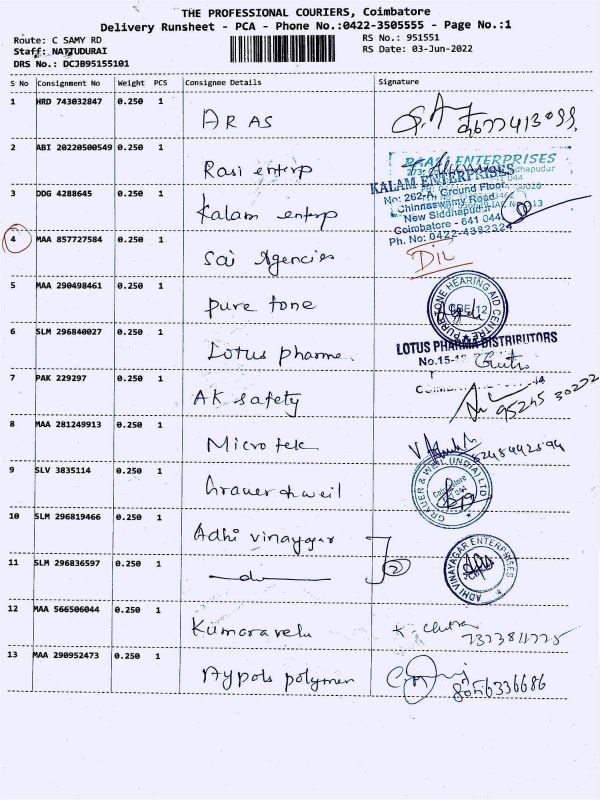 THE PROFESSIONAL COURIERS, Coimbatore
Delivery Runsheet - PCA - Phone No.:0422-3505555 - Page No.:1
Route: C SAMY RD
RS No.: 951551
Staff: NATJUDURAI
RS Date: 03-Jun-2022
DRS No.: DCJB95155101
S No Consignment No Weight PCS Consignee Details Signature
1 HRD 743032847 0.250 1 ARAS
2 ABI 20220500549 0.250 1 Rasi enterp
ENTERPRISES
3 DDG 4288645 0.250 1 Kalam enterp
KALAM ENTERPRISES
No: 262-A, Ground Floor
Chinnaswamy Road
New Siddhapudur
Coimbatore - 641 044
Ph. No: 0422-4392324
4 MAA 857727584 0.250 1 Sai Agencies DIL
5 MAA 290498461 0.250 1 pure tone
PURE TONE HEARING AID CENTRE
CBE-12
6 SLM 296840027 0.250 1 Lotus pharma
LOTUS PHARMA DISTRIBUTORS
No.15-
7 PAK 229297 0.250 1 AK safety 95245 30222
8 MAA 281249913 0.250 1 Microtek
9 SLV 3835114 0.250 1 Grauer & weil
GRAUER & WEIL (INDIA) LTD
Coimbatore
10 SLM 296819466 0.250 1 Adhi vinayagar
11 SLM 296836597 0.250 1 — do — 2
ADHI VINAYAGAR ENTERPRISES
12 MAA 566506044 0.250 1 Kumaravelu K. Chitra
7373811775
13 MAA 290952473 0.250 1 Aypols polymer
8056336686